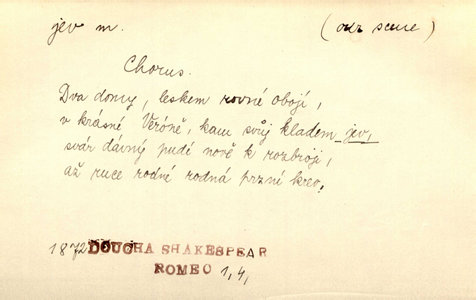 jev m. (okr scene)
Chorus.
Dva domy, leskem rovné obojí,
v krásné Veróně, kam svůj kladem jev,
svár dávný pudí nově k rozbroji,
až ruce rodné rodná przní krev.
1872 DOUCHA SHAKESPEAR
ROMEO 1,4,